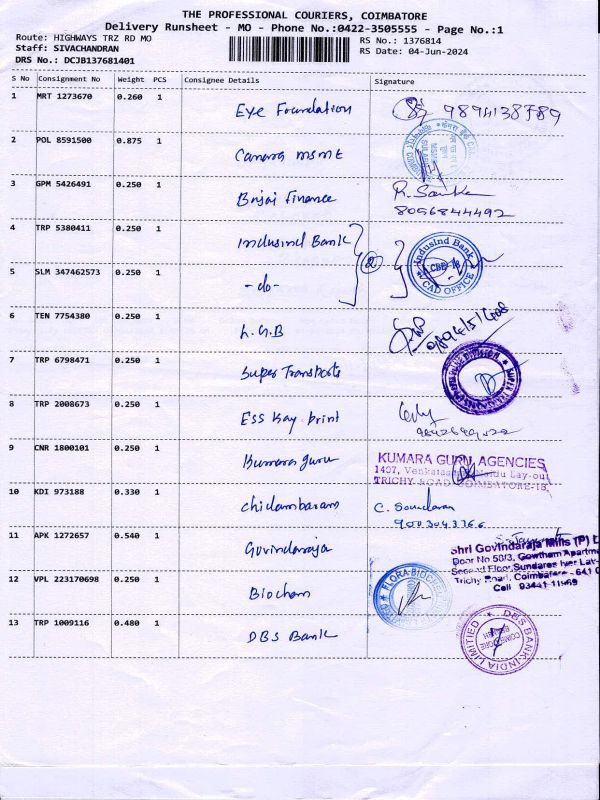 THE PROFESSIONAL COURIERS, COIMBATORE
Delivery Runsheet - MO - Phone No.:0422-3505555 - Page No.:1
Route: HIGHWAYS TRZ RD MO
RS No.: 1376814
Staff: SIVACHANDRAN
RS Date: 04-Jun-2024
DRS No.: DCJB137681401
S No Consignment No Weight PCS Consignee Details Signature
1 MRT 1273670 0.260 1 Eye Foundation
2 POL 8591500 0.875 1 Canara msmt
3 GPM 5426491 0.250 1 Bajai Finance R. Sanka
8056844492
4 TRP 5380411 0.250 1 Indusind Bank 2 Indusind Bank
CAD OFFICE
5 SLM 347462573 0.250 1 -do-
6 TEN 7754380 0.250 1 L.G.B
7 TRP 6798471 0.250 1 Super Transports
8 TRP 2008673 0.250 1 Ess Kay print
9 CNR 1800101 0.250 1 Kumara guru KUMARA GURU AGENCIES
1407, Naidu Lay-out
TRICHY ROAD COIMBATORE-18
10 KDI 973188 0.330 1 Chidambaram C. Soundaran
11 APK 1272657 0.540 1 Govindaraja Shri Govindaraja Mills (P) L
Door No 50/3, Gowtham Apartme
Second Floor, Sundares Iyer Lay-
Trichy Road, Coimbatore - 641 0
Cell 93441 11969
12 VPL 223170698 0.250 1 Biochem FLORA-BIOCH
13 TRP 1009116 0.480 1 DBS Bank DBS BANK INDIA LIMITED